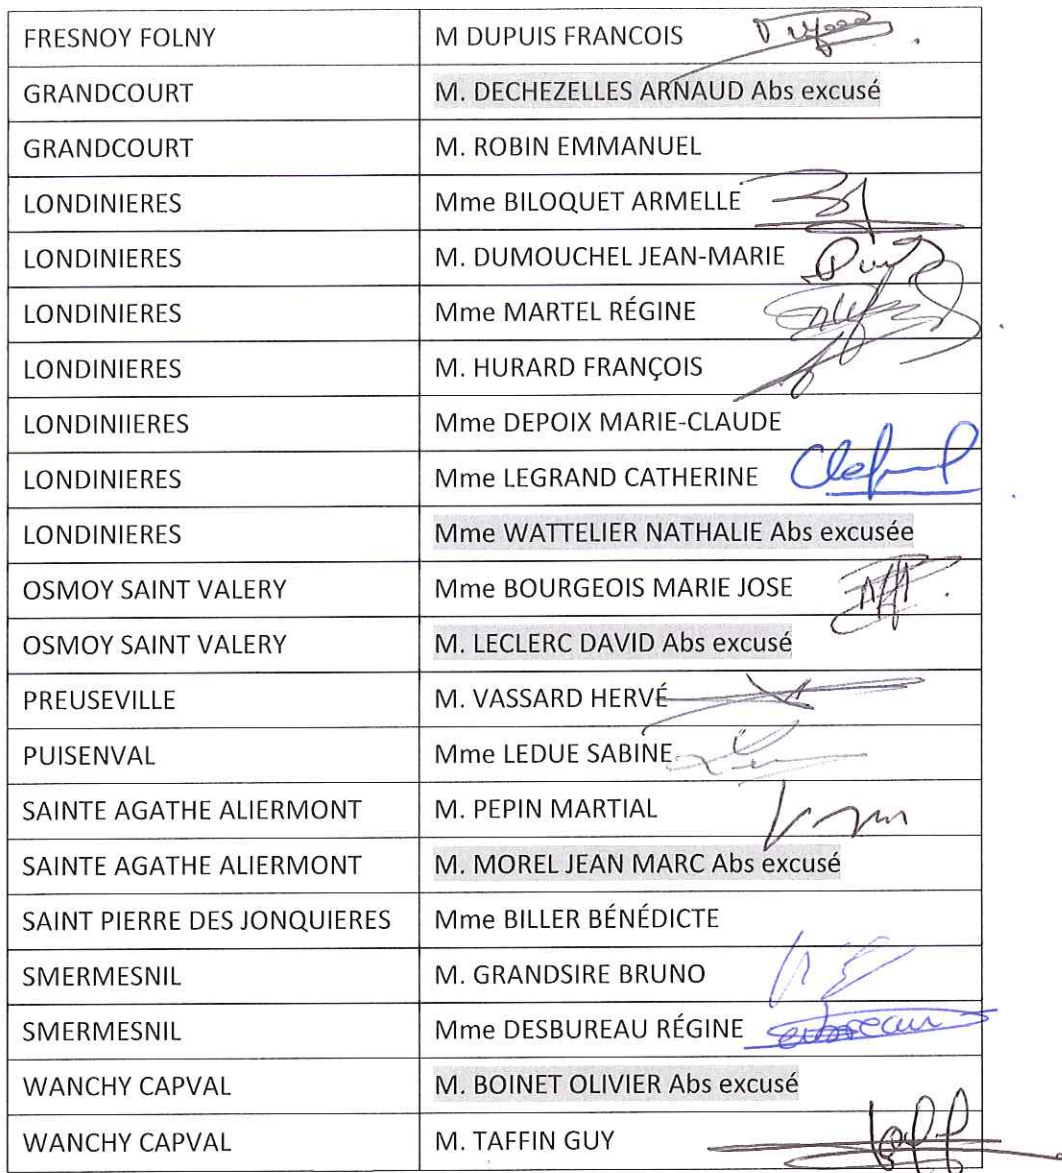 FRESNOY FOLNY M DUPUIS FRANCOIS
GRANDCOURT M. DECHEZELLES ARNAUD Abs excusé
GRANDCOURT M. ROBIN EMMANUEL
LONDINIERES Mme BILOQUET ARMELLE
LONDINIERES M. DUMOUCHEL JEAN-MARIE
LONDINIERES Mme MARTEL RÉGINE
LONDINIERES M. HURARD FRANÇOIS
LONDINIIERES Mme DEPOIX MARIE-CLAUDE
LONDINIERES Mme LEGRAND CATHERINE
LONDINIERES Mme WATTELIER NATHALIE Abs excusée
OSMOY SAINT VALERY Mme BOURGEOIS MARIE JOSE
OSMOY SAINT VALERY M. LECLERC DAVID Abs excusé
PREUSEVILLE M. VASSARD HERVÉ
PUISENVAL Mme LEDUE SABINE
SAINTE AGATHE ALIERMONT M. PEPIN MARTIAL
SAINTE AGATHE ALIERMONT M. MOREL JEAN MARC Abs excusé
SAINT PIERRE DES JONQUIERES Mme BILLER BÉNÉDICTE
SMERMESNIL M. GRANDSIRE BRUNO
SMERMESNIL Mme DESBUREAU RÉGINE
WANCHY CAPVAL M. BOINET OLIVIER Abs excusé
WANCHY CAPVAL M. TAFFIN GUY